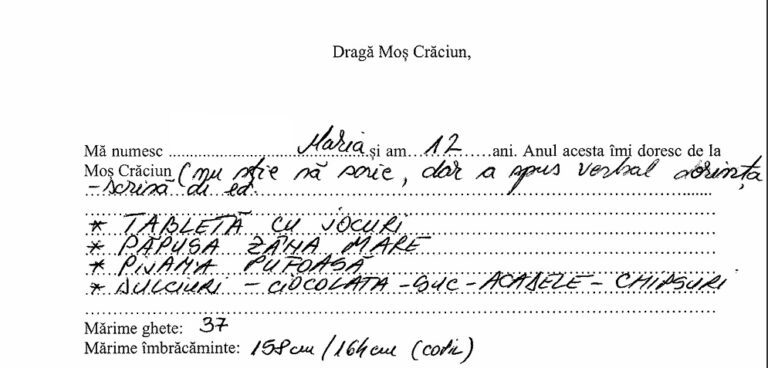 Dragă Moș Crăciun,
Mă numesc ........................ Maria și am... 12 ......ani. Anul acesta îmi doresc de la
Moș Crăciun (nu știe să scrie, dar a spus verbal dorința
- scrisă de ed.
* TABLETĂ CU JOCURI
* PĂPUȘA ZÂNA MARE
* PIJAMA PUFOASĂ
* DULCIURI - CIOCOLATA - SUC - ACADELE - CHIPSURI
Mărime ghete: 37
Mărime îmbrăcăminte: 158 cm / 164 cm (copil)